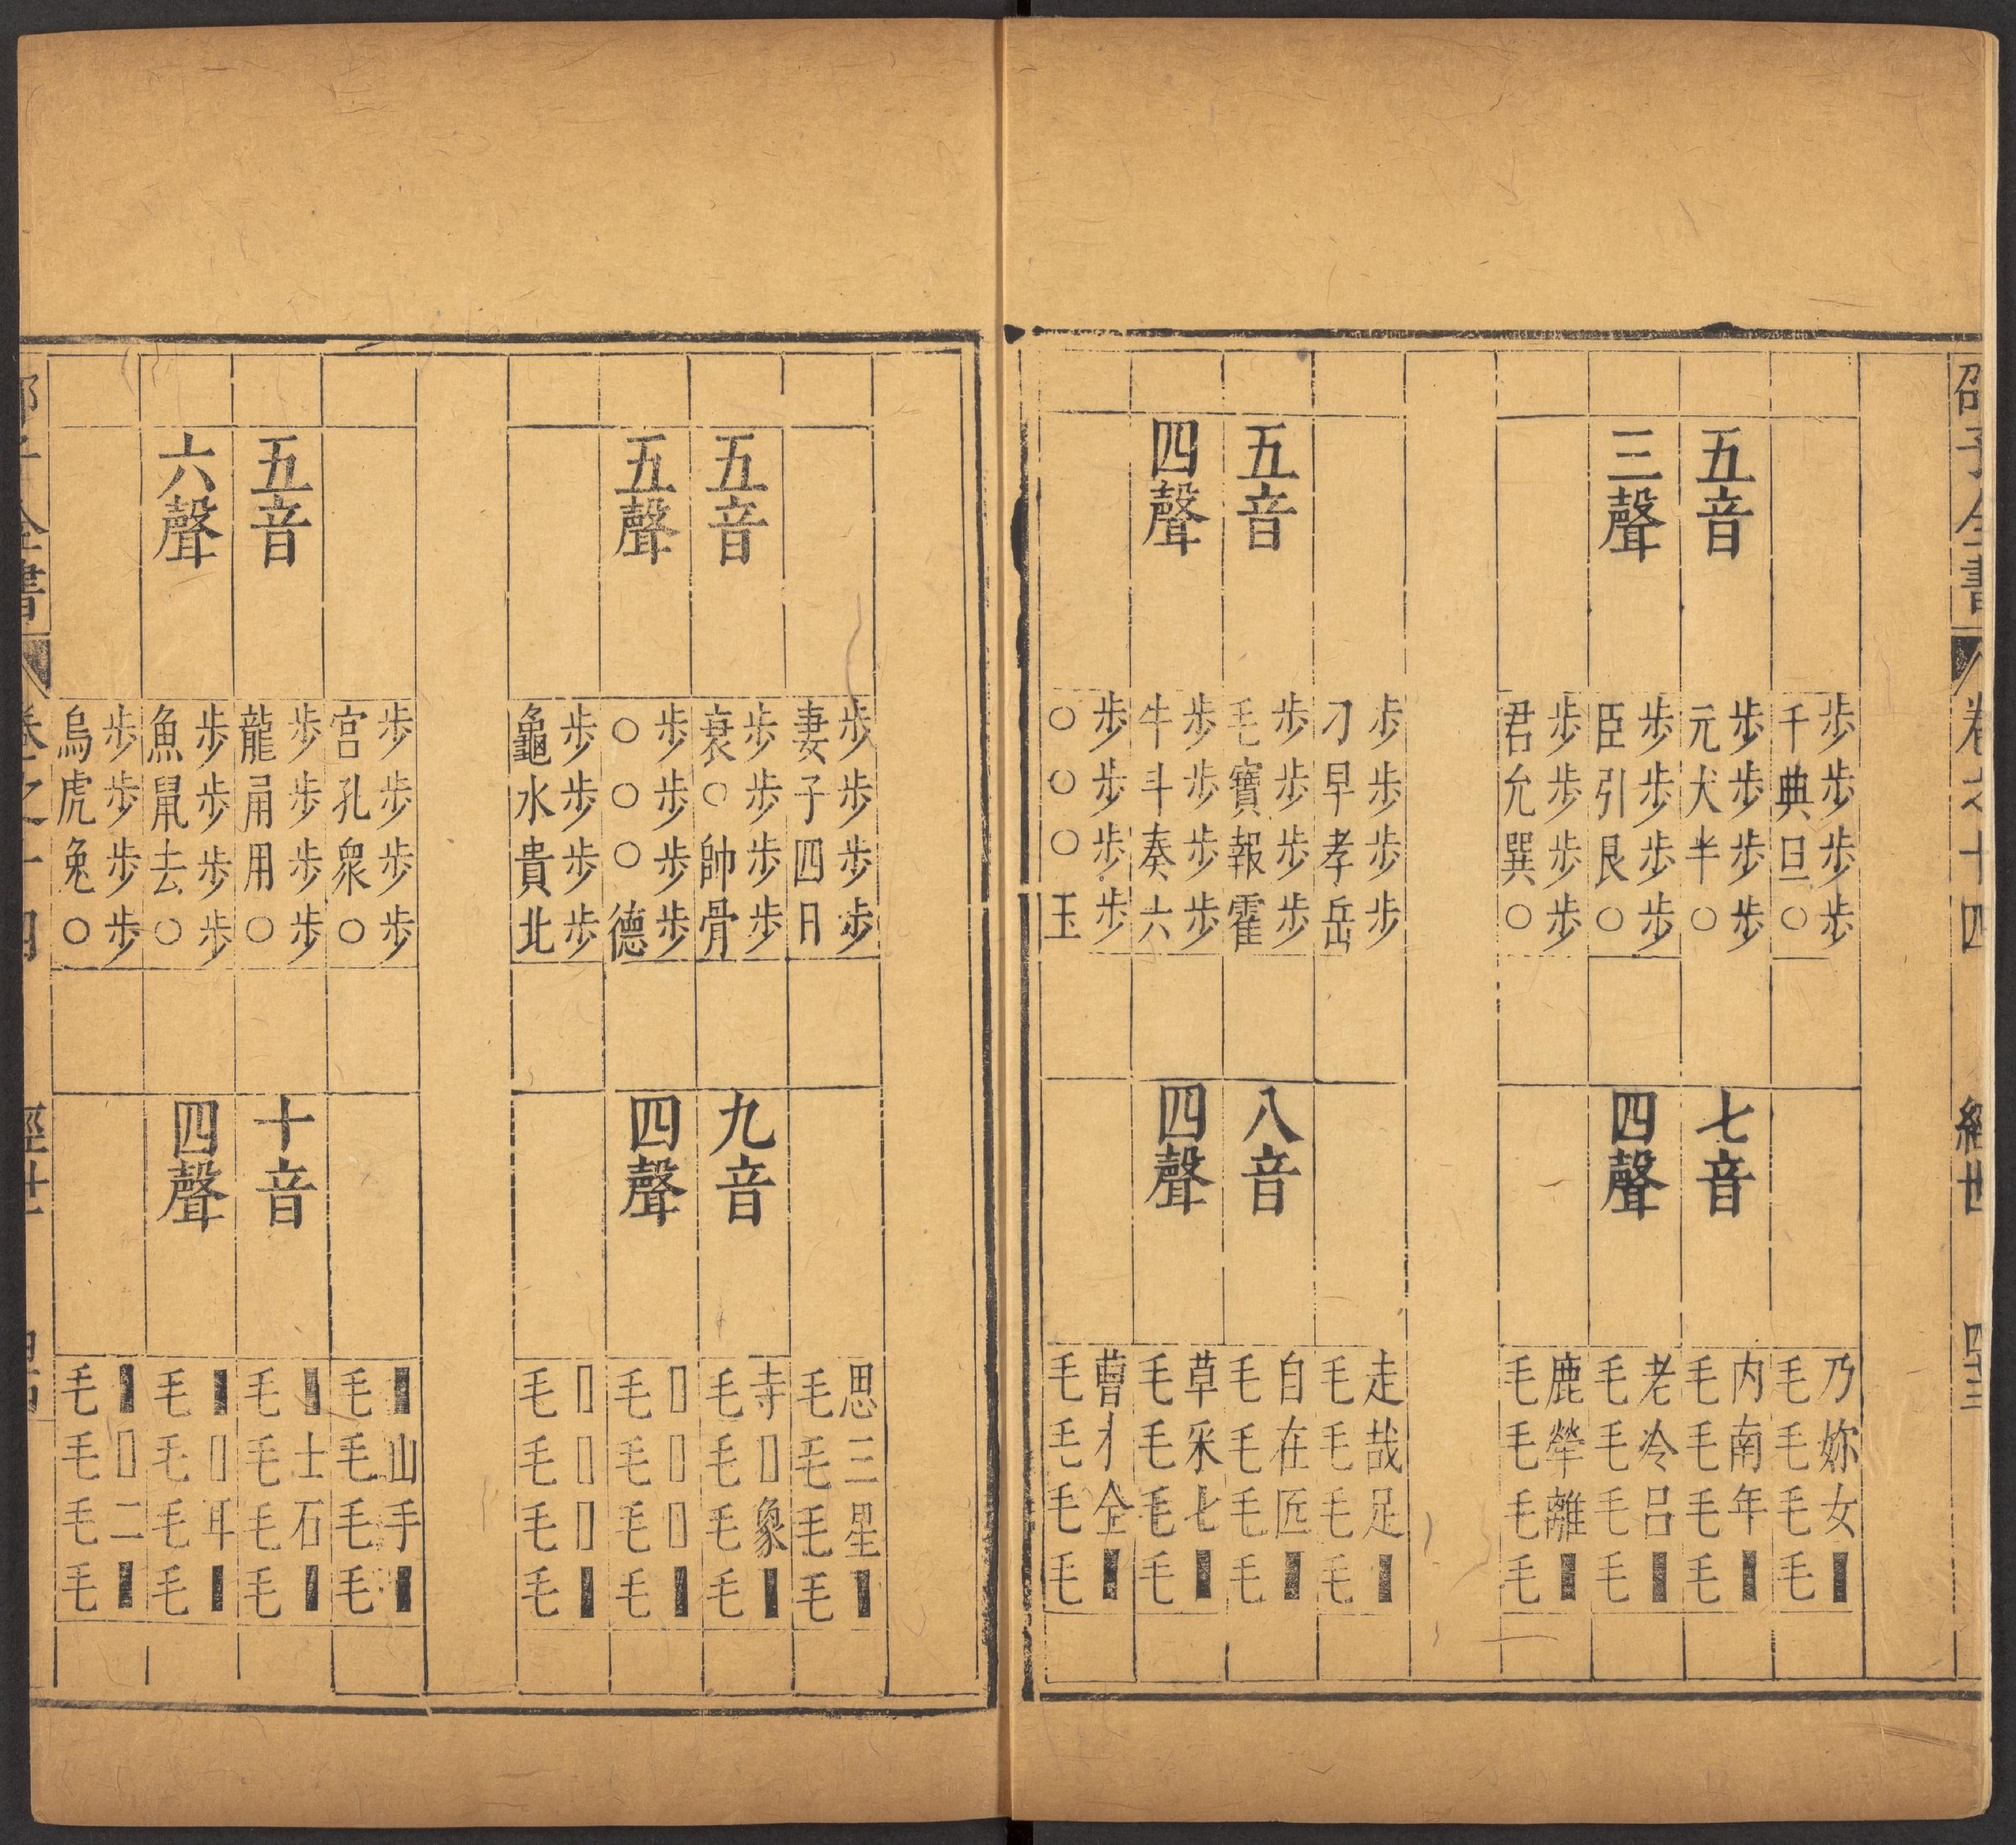 邵子全書 卷之十四 經世
步步步步
千典旦○
五音 步步步步
元犬半○
三聲 步步步步
臣引艮○
步步步步
君允巽○
乃妳女▮
毛毛毛毛
七音 内南年▮
毛毛毛毛
四聲 老冷呂▮
毛毛毛毛
鹿犖離▮
毛毛毛毛
步步步步
刁早孝岳
五音 步步步步
毛寶報霍
四聲 步步步步
牛斗奏六
步步步步
○○○玉
走哉足▮
毛毛毛毛
八音 自在匠▮
毛毛毛毛
四聲 草采七▮
毛毛毛毛
曹才全▮
毛毛毛毛
步步步步
妻子四日
五音 步步步步
衰○帥骨
五聲 步步步步
○○○德
步步步步
龜水貴北
思三星▮
毛毛毛毛
九音 寺▯象▮
毛毛毛毛
四聲 ▯▯▯▮
毛毛毛毛
▯▯▯▮
毛毛毛毛
步步步步
宮孔衆○
五音 步步步步
龍甬用○
六聲 步步步步
魚鼠去○
步步步步
烏虎兔○
▮山手▮
毛毛毛毛
十音 ▮士石▮
毛毛毛毛
四聲 ▮▯耳▮
毛毛毛毛
▮▯二▮
毛毛毛毛
子全書 卷之十四 經世